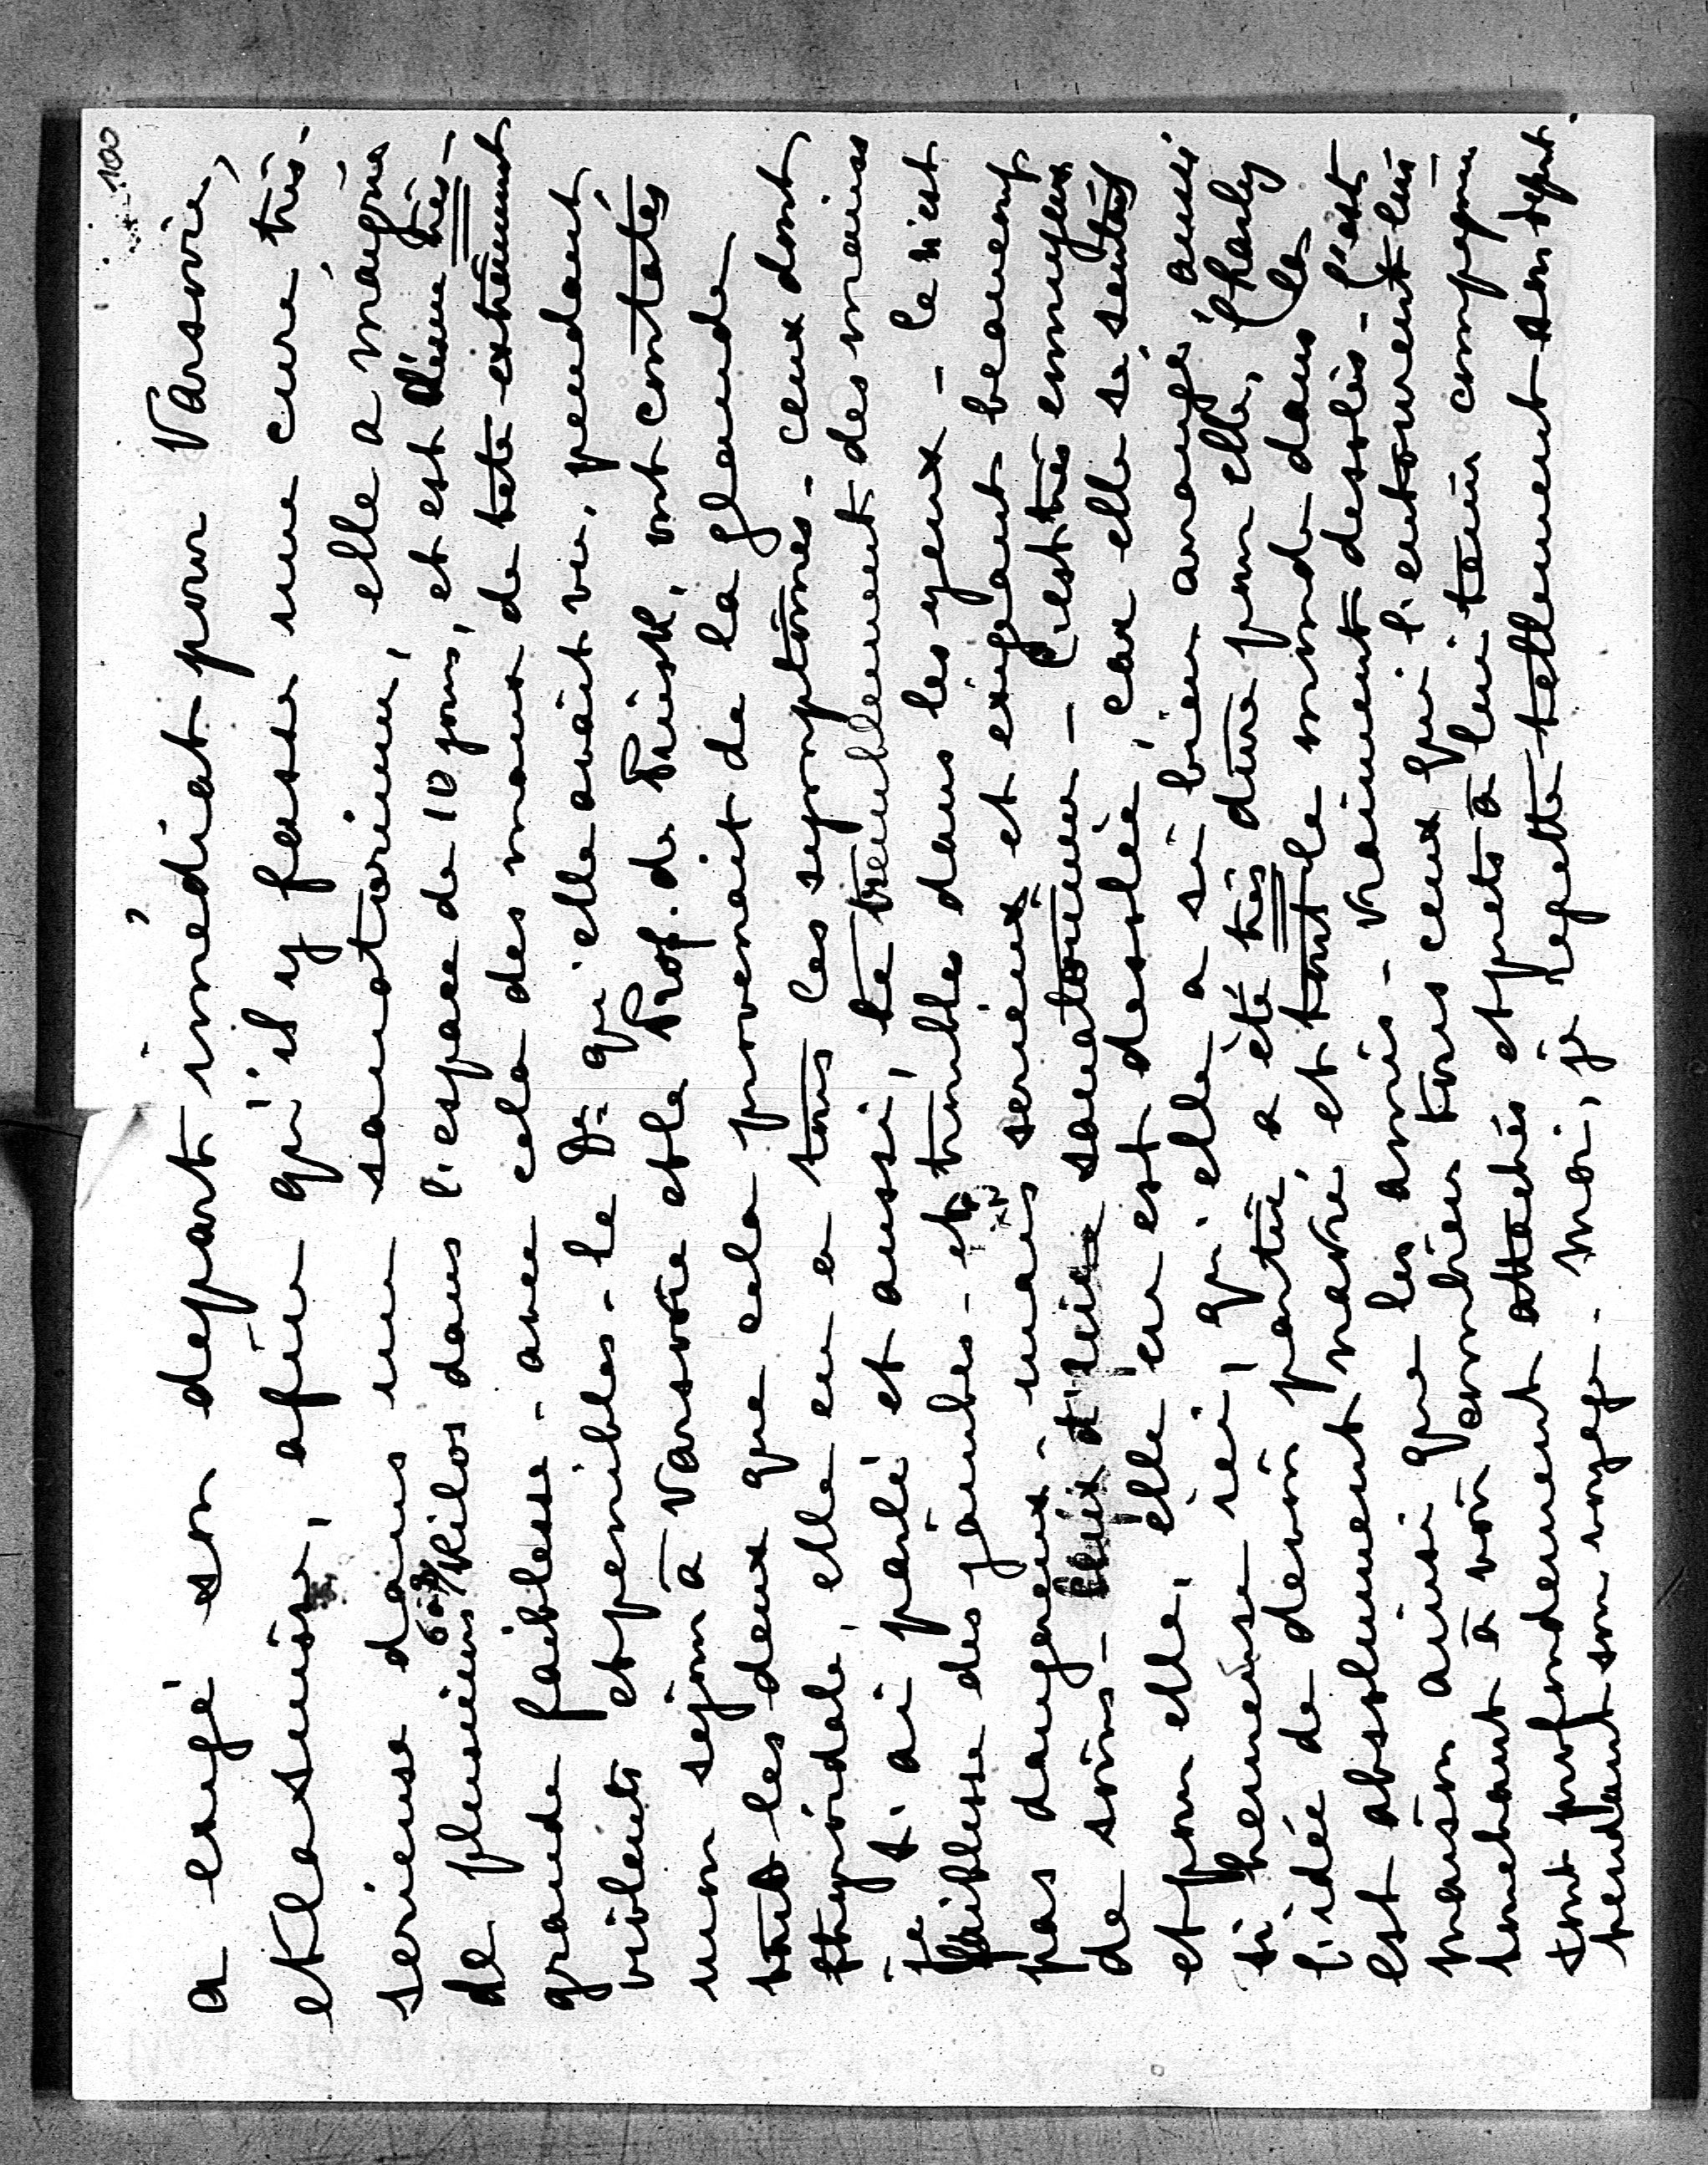 100
a exigé son depart imediat pour Varsovie,
et la suisse, afin qu'il y fasse une cure très-
serieuse dans un sanatorium, elle a maigrie
de plusieurs 6 à 7 Kilos dans l'espace de 10 jours, et est d'une très-
grande faiblesse - avec cela des maux de tete extrêmement
violents et penibles - le Dr qui elle avait vu, pendant
mon sejour à Varsovie et le Prof. de Prusse, ont constatés
tout les deux que cela provenait de la glande
thyroïdale, elle en a tous les symptômes - ceux dont
je t'ai parlé et aussi, le tremblement des mains
faiblesse des jambes - et trouble dans les yeux - Ce n'est
pas dangereux - mais serieux et exigeant beaucoup
de soins - sanatorium - C'est très ennuyeux
et pour elle, elle en est desolée, car elle se sentait
si heureuse ici, qu'elle a si bien arrangé, aussi
l'idée de devoir partir, a été très dure pour elle, Charley
est absolument navré, et tout le monde dans la
maison ainsi que les amis - vraiment desolés - C'est
touchant à voir combien tous ceux qui l'entourent lui
sont profondement attachés et prets à lui tenir compagnie
pendant son voyage. Moi, je regrette tellement son depart.